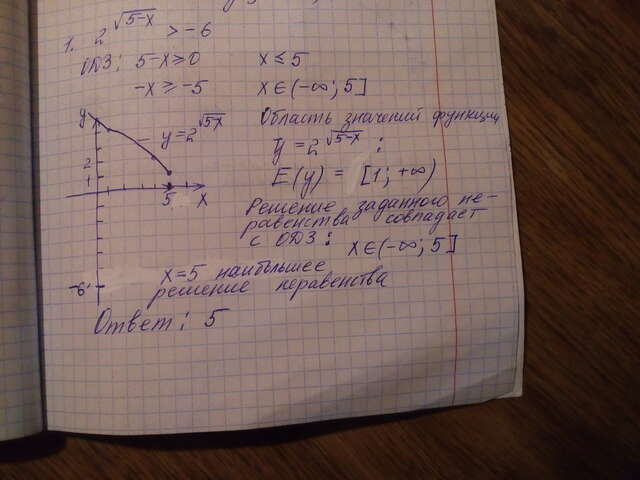 1. 2^√(5-x) > -6
ОДЗ: 5-x ≥ 0 x ≤ 5
-x ≥ -5 x ∈ (-∞; 5]
y
y = 2^√(5-x)
2
1
5 x
-6
Область значений функции
y = 2^√(5-x) :
E(y) = [1; +∞)
Решение заданного не-
равенства совпадает
с ОДЗ: x ∈ (-∞; 5]
x = 5 наибольшее
решение неравенства
Ответ: 5